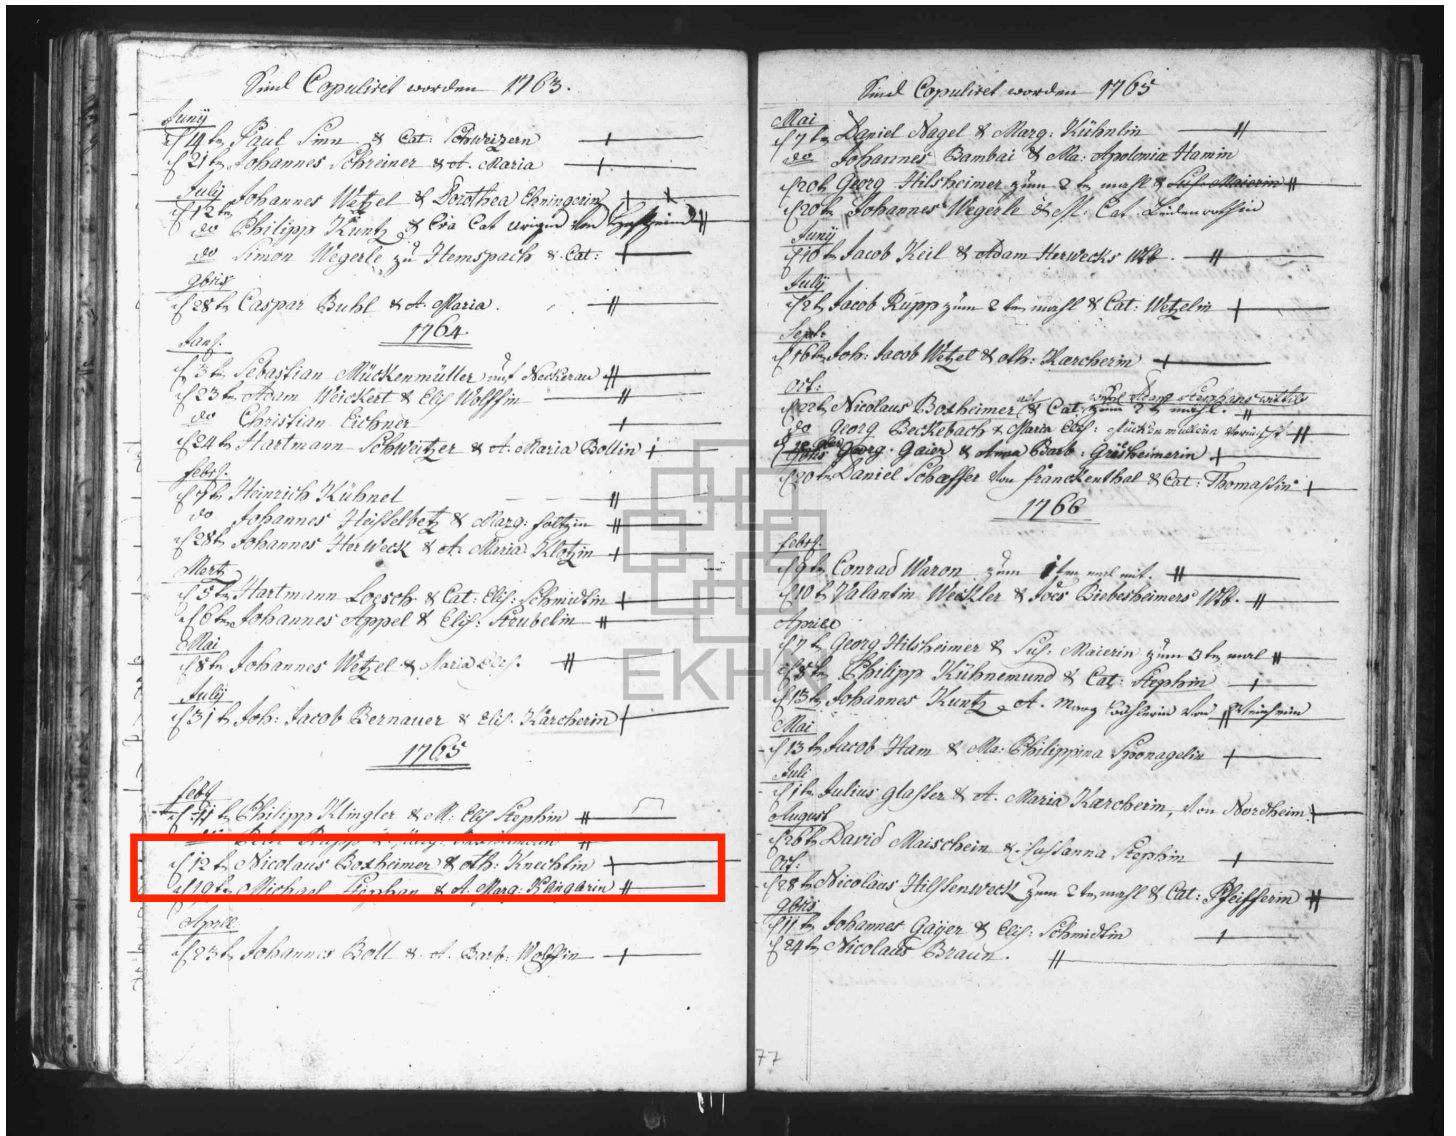 Sind Copuliret worden 1763.
Juny
d 14t Paul Sinn & Cat: Schweizern
d 21t Johannes Schreiner & A. Maria
July Johannes Wetzel & Dorothea Ehningerin
d 12t
do Philipp Kuntz & Eva Cat von
do Simon Wegerle zu Hemspach & Cat:
9bris
d 28t Caspar Buhl & A. Maria.
1764
Jan:
d 3t Sebastian Mückenmüller auf Neckerau
d 23t Adam Weickert & Elis Wolffin
do Christian Eichner
d 24t Hartmann Schweitzer & A. Maria Bollin
febr:
d 7t Heinrich Kühnel
do Johannes Heisselbetz & Marg: foltzin
d 28t Johannes Herweck & A. Maria Klotzin
Mertz
d 5t Hartmann Loesch & Cat: Elis: Schmidtin
d 6t Johannes Appel & Elis. Steubelin
Mai
d 8t Johannes Wetzel & Maria Elis.
July
d 31t Joh: Jacob Bernauer & Elis. Karcherin
1765
feby
d 11t Philipp Klingler & M: Elis Stephin
do Peter Rupp &
d 12t Nicolaus Boxheimer & Ath: Knechtin
d 19t Michael Stephan & A. Marg:
Aprill
d 23t Johannes Boll & A. Barb: Wolffin
Sind Copuliret worden 1765
Mai
d 7t Daniel Nagel & Marg: Kühnlin
do Johannes Bambai & Ma: Apolonia Hamin
d 20t Georg Hilsheimer zum 2t mahl & Sus: Maierin
d 20t Johannes Wegerle & Cat. Leidenrothin
Juny
d 10t Jacob Keil & Adam Herwecks Wtb.
July
d 2t Jacob Rupp zum 2t mahl & Cat: Wetzelin
Sept:
d 16t Joh: Jacob Wetzel & Ath: Karcherin
Oct:
d 22t Nicolaus Boxheimer & Cat: zum 2t mahl. Stephans wittib
do Georg Beckebach & Maria Elis: Mückenmüllerin
Georg Gaier & Anna Barb: Grisheimerin
d 20t Daniel Schæffer von franckenthal & Cat: Thomassin
1766
febr:
d 9t Conrad Waron zum 1ten mal mit
d 10t Valantin Weickler & Joes Birbesheimers Wtb.
Aprill
d 7t Georg Hilsheimer & Sus: Maierin zum 3t mal
d 8t Philipp Kühnemund & Cat: Stephin
d 13t Johannes Kuntz & A. Marg von Weinheim
Mai
d 13t Jacob Ham & Ma: Philippina Sponagelin
Juli
d 1t Julius glasser & A. Maria Karcherin, von Nordheim.
August
d 26t David Maischein & Susanna Stephin
Oct:
d 28t Nicolaus Hilssenweck zum 2t mahl & Cat: Pfeifferin
9bris
d 11t Johannes Gaÿer & Elis: Schmidtin
d 24t Nicolaus Braun.
77
EKHN